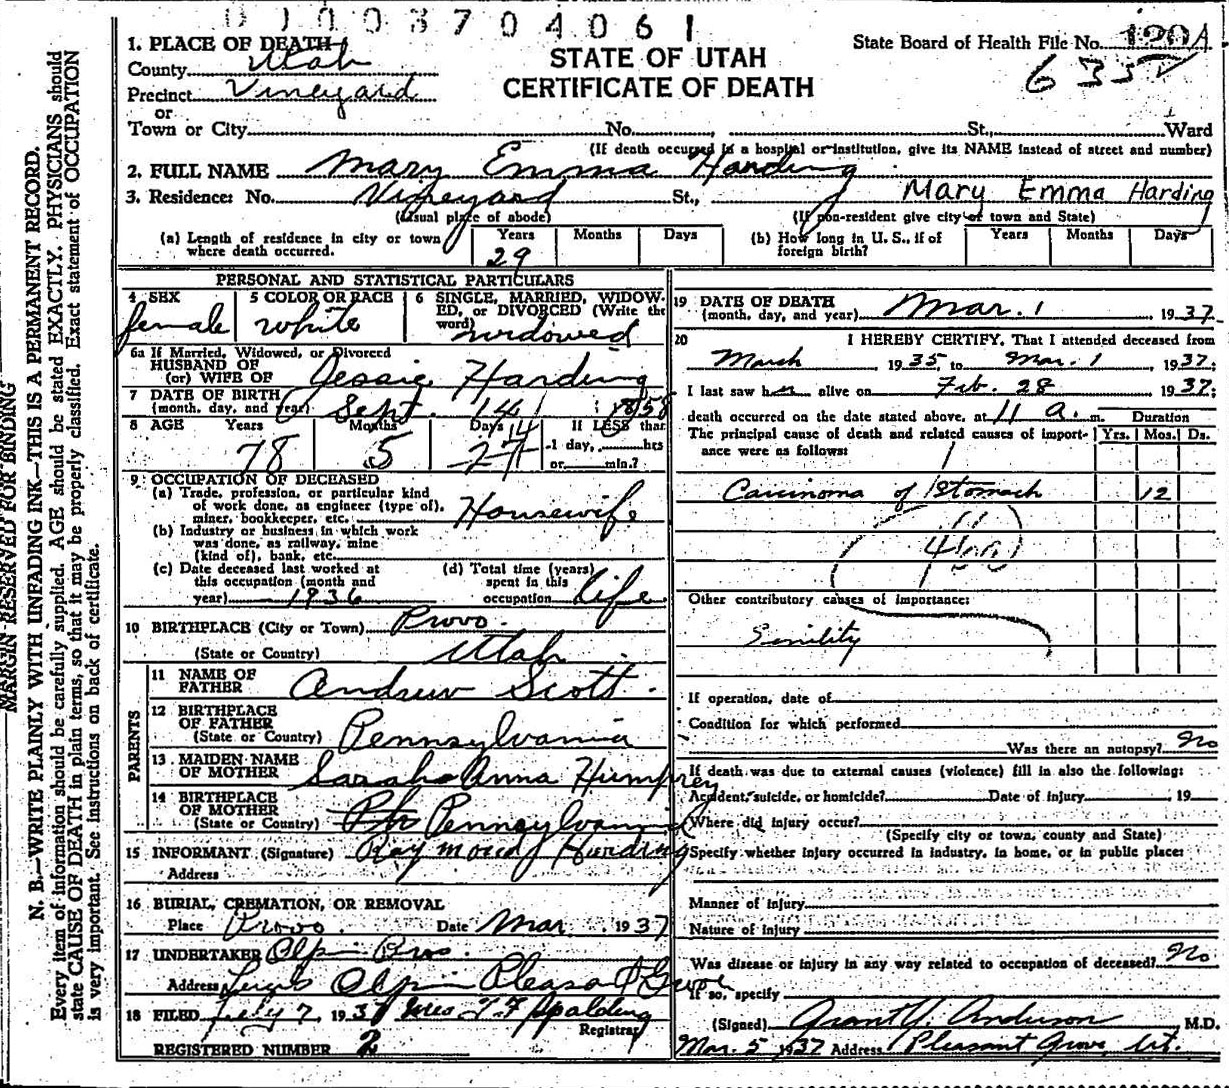 01003704061
1. PLACE OF DEATH
County Utah
STATE OF UTAH
State Board of Health File No. 120A
Precinct Vineyard
CERTIFICATE OF DEATH
635
or
Town or City No. , St., Ward
(If death occurred in a hospital or institution, give its NAME instead of street and number)
2. FULL NAME Mary Emma Harding
3. Residence: No. Vineyard St., Mary Emma Harding
(Usual place of abode) (If non-resident give city or town and State)
(a) Length of residence in city or town where death occurred. Years 29 Months Days
(b) How long in U. S., if of foreign birth? Years Months Days
PERSONAL AND STATISTICAL PARTICULARS
4 SEX female
5 COLOR OR RACE white
6 SINGLE, MARRIED, WIDOWED, or DIVORCED (Write the word) widowed
6a If Married, Widowed, or Divorced
HUSBAND OF
(or) WIFE OF Jessie Harding
7 DATE OF BIRTH
(month, day, and year) Sept. 14 1858
8 AGE Years 78 Months 5 Days 14 27 If LESS than
1 day, hrs
or min.?
9 OCCUPATION OF DECEASED
(a) Trade, profession, or particular kind
of work done, as engineer (type of),
miner, bookkeeper, etc. Housewife
(b) Industry or business in which work
was done, as railway, mine
(kind of), bank, etc.
(c) Date deceased last worked at
this occupation (month and
year) 1936
(d) Total time (years)
spent in this
occupation life
10 BIRTHPLACE (City or Town) Provo.
(State or Country) Utah
PARENTS
11 NAME OF
FATHER Andrew Scott.
12 BIRTHPLACE
OF FATHER
(State or Country) Pennsylvania
13 MAIDEN NAME
OF MOTHER Sarah Anna Humphrey
14 BIRTHPLACE
OF MOTHER
(State or Country) Ph Pennsylvania
15 INFORMANT (Signature) Raymond Harding
Address
16 BURIAL, CREMATION, OR REMOVAL
Place Provo. Date Mar 1937
17 UNDERTAKER Olpin Bros.
Address Olpin Pleasant Grove
18 FILED July 7, 1937 Mrs T F Spalding
Registrar
REGISTERED NUMBER 2
19 DATE OF DEATH
(month, day, and year) Mar. 1, 1937.
20 I HEREBY CERTIFY, That I attended deceased from
March 1935 to Mar. 1, 1937;
I last saw her alive on Feb. 28 1937;
death occurred on the date stated above, at 11 a. m. Duration
The principal cause of death and related causes of importance were as follows: Yrs. Mos. Ds.
Carcinoma of Stomach 12
46
Other contributory causes of importance:
Senility
If operation, date of
Condition for which performed
Was there an autopsy? No
If death was due to external causes (violence) fill in also the following:
Accident, suicide, or homicide? Date of injury , 19
Where did injury occur?
(Specify city or town, county and State)
Specify whether injury occurred in industry, in home, or in public place:
Manner of injury
Nature of injury
Was disease or injury in any way related to occupation of deceased? No
If so, specify
(Signed) Grant Y. Anderson M.D.
Mar. 5 1937 Address Pleasant Grove, Ut.
MARGIN RESERVED FOR BINDING
N. B.—WRITE PLAINLY WITH UNFADING INK—THIS IS A PERMANENT RECORD.
Every item of information should be carefully supplied. AGE should be stated EXACTLY. PHYSICIANS should
state CAUSE OF DEATH in plain terms, so that it may be properly classified. Exact statement of OCCUPATION
is very important. See instructions on back of certificate.